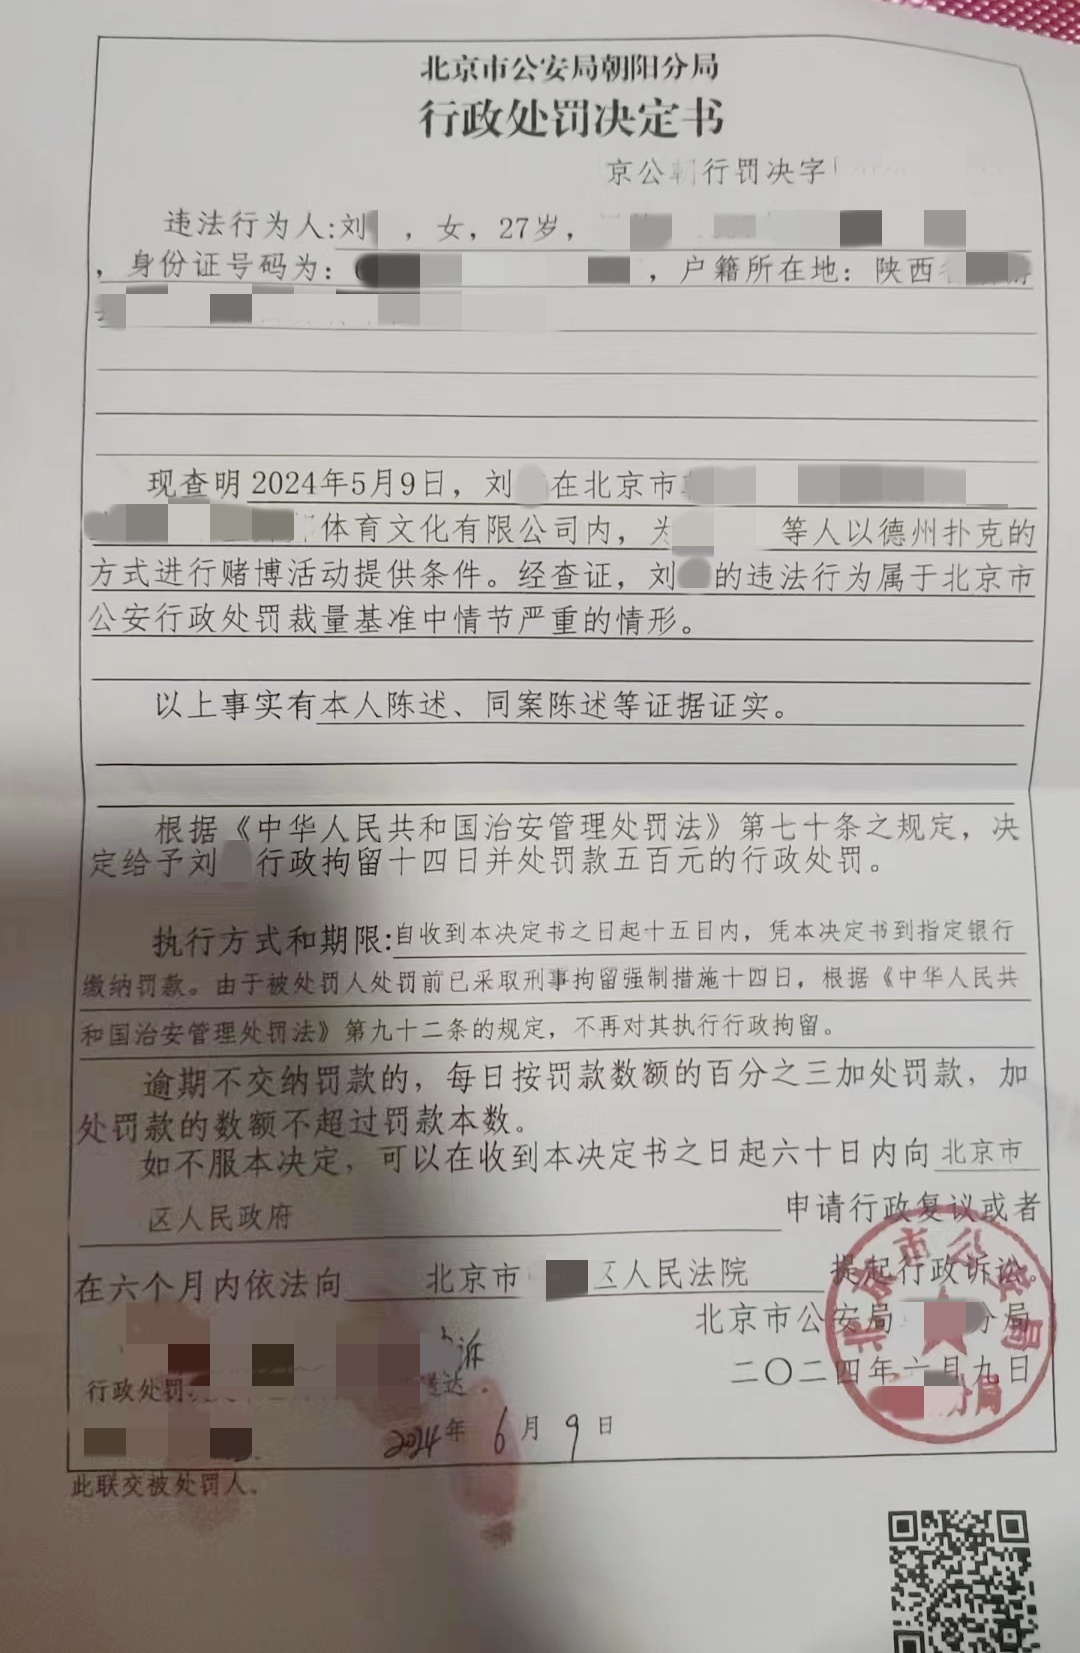 北京市公安局朝阳分局
行政处罚决定书
京公朝行罚决字
违法行为人:刘 ，女，27岁，
，身份证号码为： ，户籍所在地：陕西
现查明2024年5月9日，刘 在北京市
体育文化有限公司内，为 等人以德州扑克的
方式进行赌博活动提供条件。经查证，刘 的违法行为属于北京市
公安行政处罚裁量基准中情节严重的情形。
以上事实有本人陈述、同案陈述等证据证实。
根据《中华人民共和国治安管理处罚法》第七十条之规定，决
定给予刘 行政拘留十四日并处罚款五百元的行政处罚。
执行方式和期限:自收到本决定书之日起十五日内，凭本决定书到指定银行
缴纳罚款。由于被处罚人处罚前已采取刑事拘留强制措施十四日，根据《中华人民共
和国治安管理处罚法》第九十二条的规定，不再对其执行行政拘留。
逾期不交纳罚款的，每日按罚款数额的百分之三加处罚款，加
处罚款的数额不超过罚款本数。
如不服本决定，可以在收到本决定书之日起六十日内向北京市
区人民政府 申请行政复议或者
在六个月内依法向 北京市 区人民法院 提起行政诉讼。
北京市公安局 分局
二〇二四年六月九日
行政处罚 送达
2024年6月9日
此联交被处罚人。
北京市公安局
分局